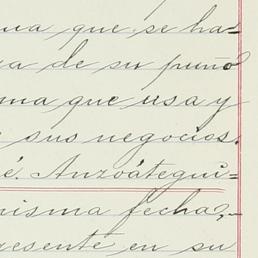 que se ha=
de su puño
que usa y
sus negocios.
Anzoátegui=
misma fecha,-
presente en su